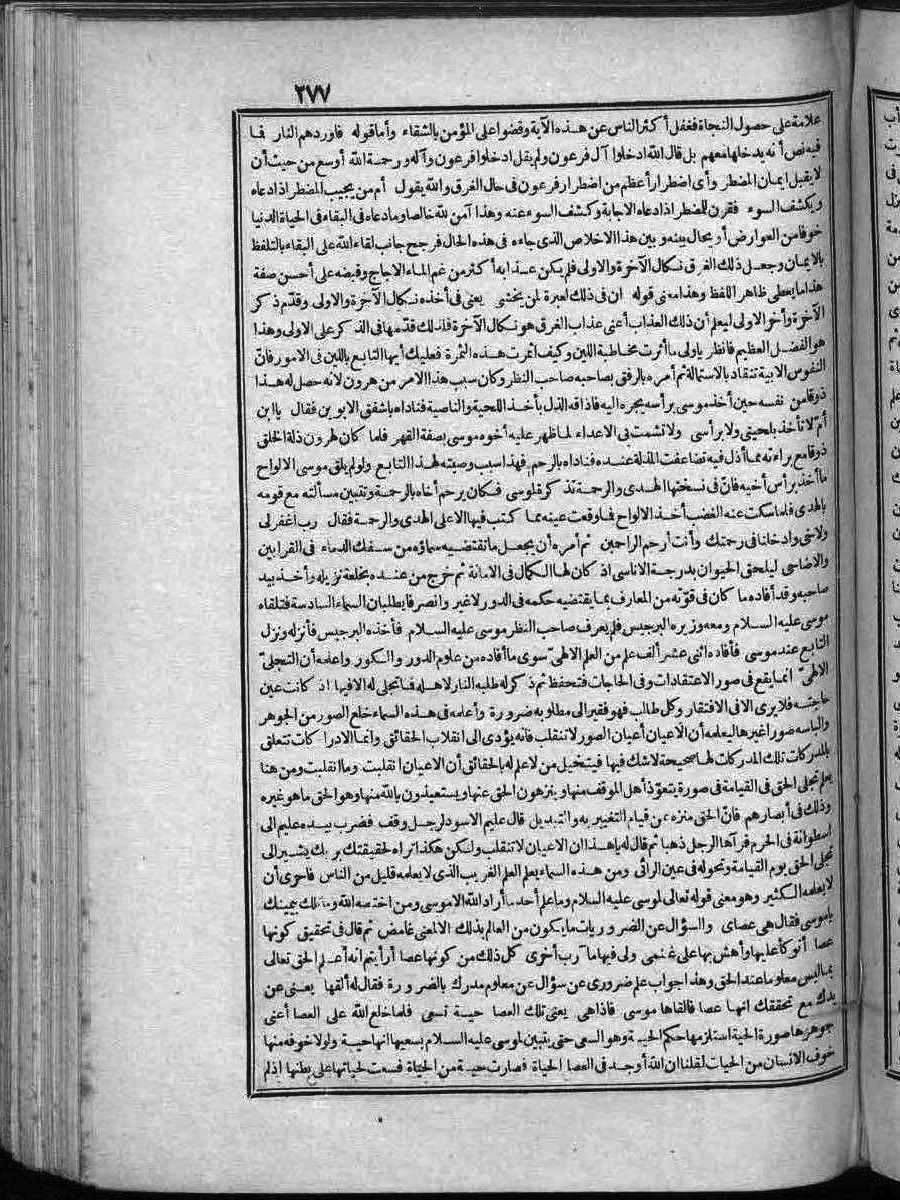 ٢٧٧
علامة على حصول النجاة فغفل أكثر الناس عن هذه الآية وقضوا على المؤمن بالشقاء وأما قوله فاوردهم النار فما
فيه نص أنه يدخلها معهم بل قال الله ادخلوا آل فرعون ولم يقل ادخلوا فرعون وآله ورحمة الله أوسع من حيث أن
لا يقبل ايمان المضطر وأى اضطرار أعظم من اضطرار فرعون فى حال الغرق والله يقول أم من يجيب المضطر اذا دعاه
ويكشف السوء فقرن للمضطر اذا دعاه الاجابة وكشف السوء عنه وهذا آمن لله خالصا وما دعاه فى البقاء فى الحياة الدنيا
خوفا من العوارض أو يحال بينه وبين هذا الاخلاص الذى جاءه فى هذه الحال فرجح جانب لقاء الله على البقاء بالتلفظ
بالايمان وجعل ذلك الغرق نكال الآخرة والاولى فلم يكن عذابه أكثر من غم الماء الاجاج وقبضه على أحسن صفة
هذا ما يعطى ظاهر اللفظ وهذا معنى قوله ان فى ذلك لعبرة لمن يخشى يعنى فى أخذه نكال الآخرة والاولى وقدم ذكر
الآخرة وأخر الاولى ليعلم أن ذلك العذاب أعنى عذاب الغرق هو نكال الآخرة فلذلك قدمها فى الذكر على الاولى وهذا
هو الفضل العظيم فانظر ياولى ما أثرت مخاطبة اللين وكيف اثمرت هذه الثمرة فعليك أيها التابع باللين فى الامور فان
النفوس الابية تنقاد بالاستمالة ثم أمره بالرفق بصاحبه صاحب النظر وكان سبب هذا الامر من هرون لانه حصل له هذا
ذوقا من نفسه حين أخذ موسى برأسه يجره اليه فاذاقه الذل بأخذ اللحية والناصية فناداه باشفق الابوين فقال ياابن
أم لا تأخذ بلحيتى ولا برأسى ولا تشمت فى الاعداء لما ظهر عليه أخوه موسى بصفة القهر فلما كان لهرون ذلة الخلق
ذوقا مع براءته مما أذل فيه تضاعفت المذلة عنده فناداه بالرحم فهذا سبب وصيته لهذا التابع ولو لم يلق موسى الالواح
ما أخذ برأس أخيه فان فى نسختها الهدى والرحمة تذكرة لموسى فكان يرحم أخاه بالرحمة وتتبين مسألته مع قومه
بالهدى فلما سكت عنه الغضب أخذ الالواح فما وقعت عينه مما كتب فيها الا على الهدى والرحمة فقال رب اغفر لى
ولاخى وادخلنا فى رحمتك وأنت أرحم الراحمين ثم أمره أن يجعل ما تقتضيه سماؤه من سفك الدماء فى القرابين
والاضاحى ليلحق الحيوان بدرجة الاناسى اذ كان لها الكمال فى الامانة ثم خرج من عنده بخلعة نزيله وأخذ بيد
صاحبه وقد أفاده ما كان فى قوته من المعارف بما يقتضيه حكمه فى الدور لا غير وانصرفا يطلبان السماء السادسة فتلقاه
موسى عليه السلام ومعه وزيره البرجيس فلم يعرف صاحب النظر موسى عليه السلام فأخذه البرجيس فأنزله ونزل
التابع عند موسى فأفاده اثنى عشر ألف علم من العلم الالهى سوى ما أفاده من علوم الدور والكور واعلمه أن التجلى
الالهى انما يقع فى صور الاعتقادات وفى الحاجات فتحفظ ثم ذكر له طلبه النار لاهله فما تجلى له الا فيها اذ كانت عين
حاجته فلا يرى الا فى الافتقار وكل طالب فهو فقير الى مطلوبه ضرورة وأعلمه فى هذه السماء خلع الصور من الجوهر
والباسه صورا غيرها ليعلمه أن الاعيان أعيان الصور لا تنقلب فانه يؤدى الى انقلاب الحقائق وانما الادراكات تتعلق
بالمدركات تلك المدركات لها صحيحة لاشك فيها فيتخيل من لا علم له بالحقائق أن الاعيان انقلبت وما انقلبت ومن هنا
يعلم تجلى الحق فى القيامة فى صورة يتعوذ أهل الموقف منها وينزهون الحق عنها ويستعيذون بالله منها وهو الحق ما هو غيره
وذلك فى أبصارهم فان الحق منزه عن قيام التغيير به والتبديل قال عليم الاسود لرجل وقف فضرب بيده عليم الى
اسطوانة فى الحرم فرآها الرجل ذهبا ثم قال له ياهذا ان الاعيان لا تنقلب ولكن هكذا تراه لحقيقتك بربك يشير الى
تجلى الحق يوم القيامة وتحوله فى عين الرائى ومن هذه السماء يعلم العلم الغريب الذى لا يعلمه قليل من الناس فاحرى أن
لا يعلمه الكثير وهو معنى قوله تعالى لموسى عليه السلام وما علم أحد ما أراد الله الا موسى ومن اختصه الله وما تلك بيمينك
ياموسى فقال هى عصاى والسؤال عن الضروريات ما يكون من العالم بذلك الا لمعنى غامض ثم قال فى تحقيق كونها
عصا أتوكأ عليها وأهش بها على غنمى ولى فيها مآرب أخرى كل ذلك من كونها عصا أرأيتم انه أعلم الحق تعالى
بما ليس معلوما عند الحق وهذا جواب علم ضرورى عن سؤال عن معلوم مدرك بالضرورة فقال له ألقها يعنى عن
يدك مع تحققك انها عصا فالقاها موسى فاذا هى يعنى تلك العصا حية تسعى فلما خلع الله على العصا أعنى
جوهرها صورة الحية استلزمها حكم الحية وهو السعى حتى يتبين لموسى عليه السلام بسعيها انها حية ولولا خوفه منها
خوف الانسان من الحيات لقلنا ان الله أوجد فى العصا الحياة فصارت حية من الحياة فسعت لحياتها على بطنها اذ لم